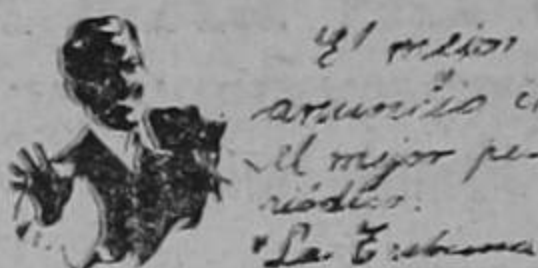 El mejor
anuncio en
el mejor pe-
riódico.
"La Tribuna